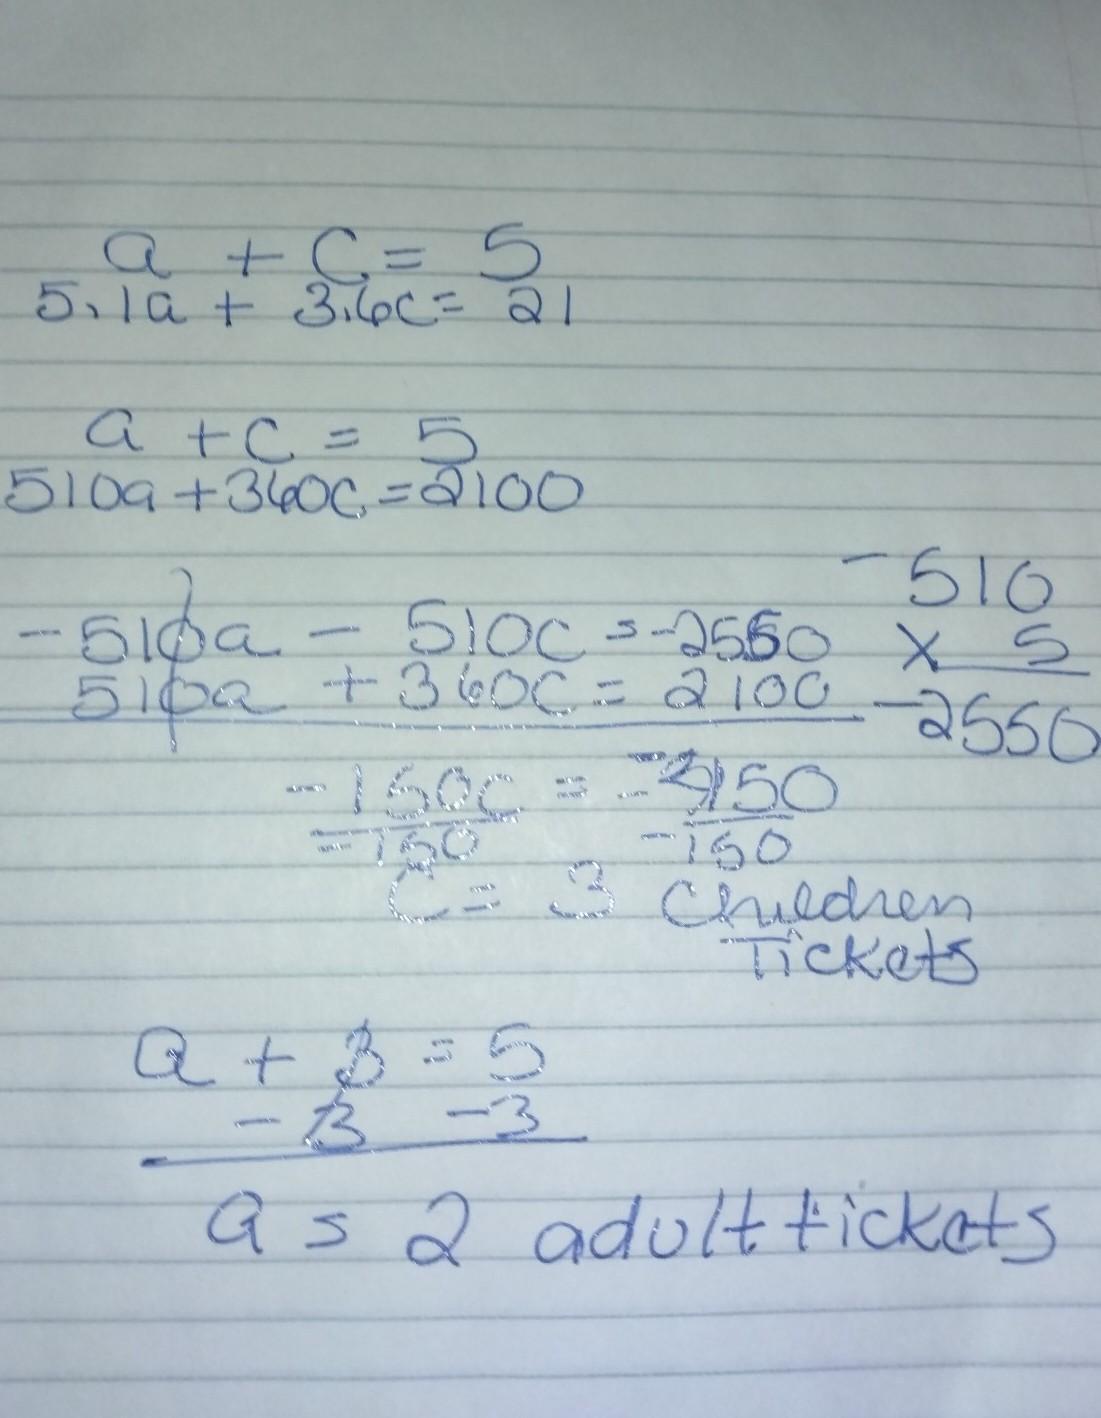 a + c = 5
5.1a + 3.6c = 21
a + c = 5
510a + 360c = 2100
-510
× 5
-2550
-510a - 510c = -2550
510a + 360c = 2100
-150c = -450
-150 -150
c = 3 Children
Tickets
a + 3 = 5
-3 -3
a = 2 adult tickets